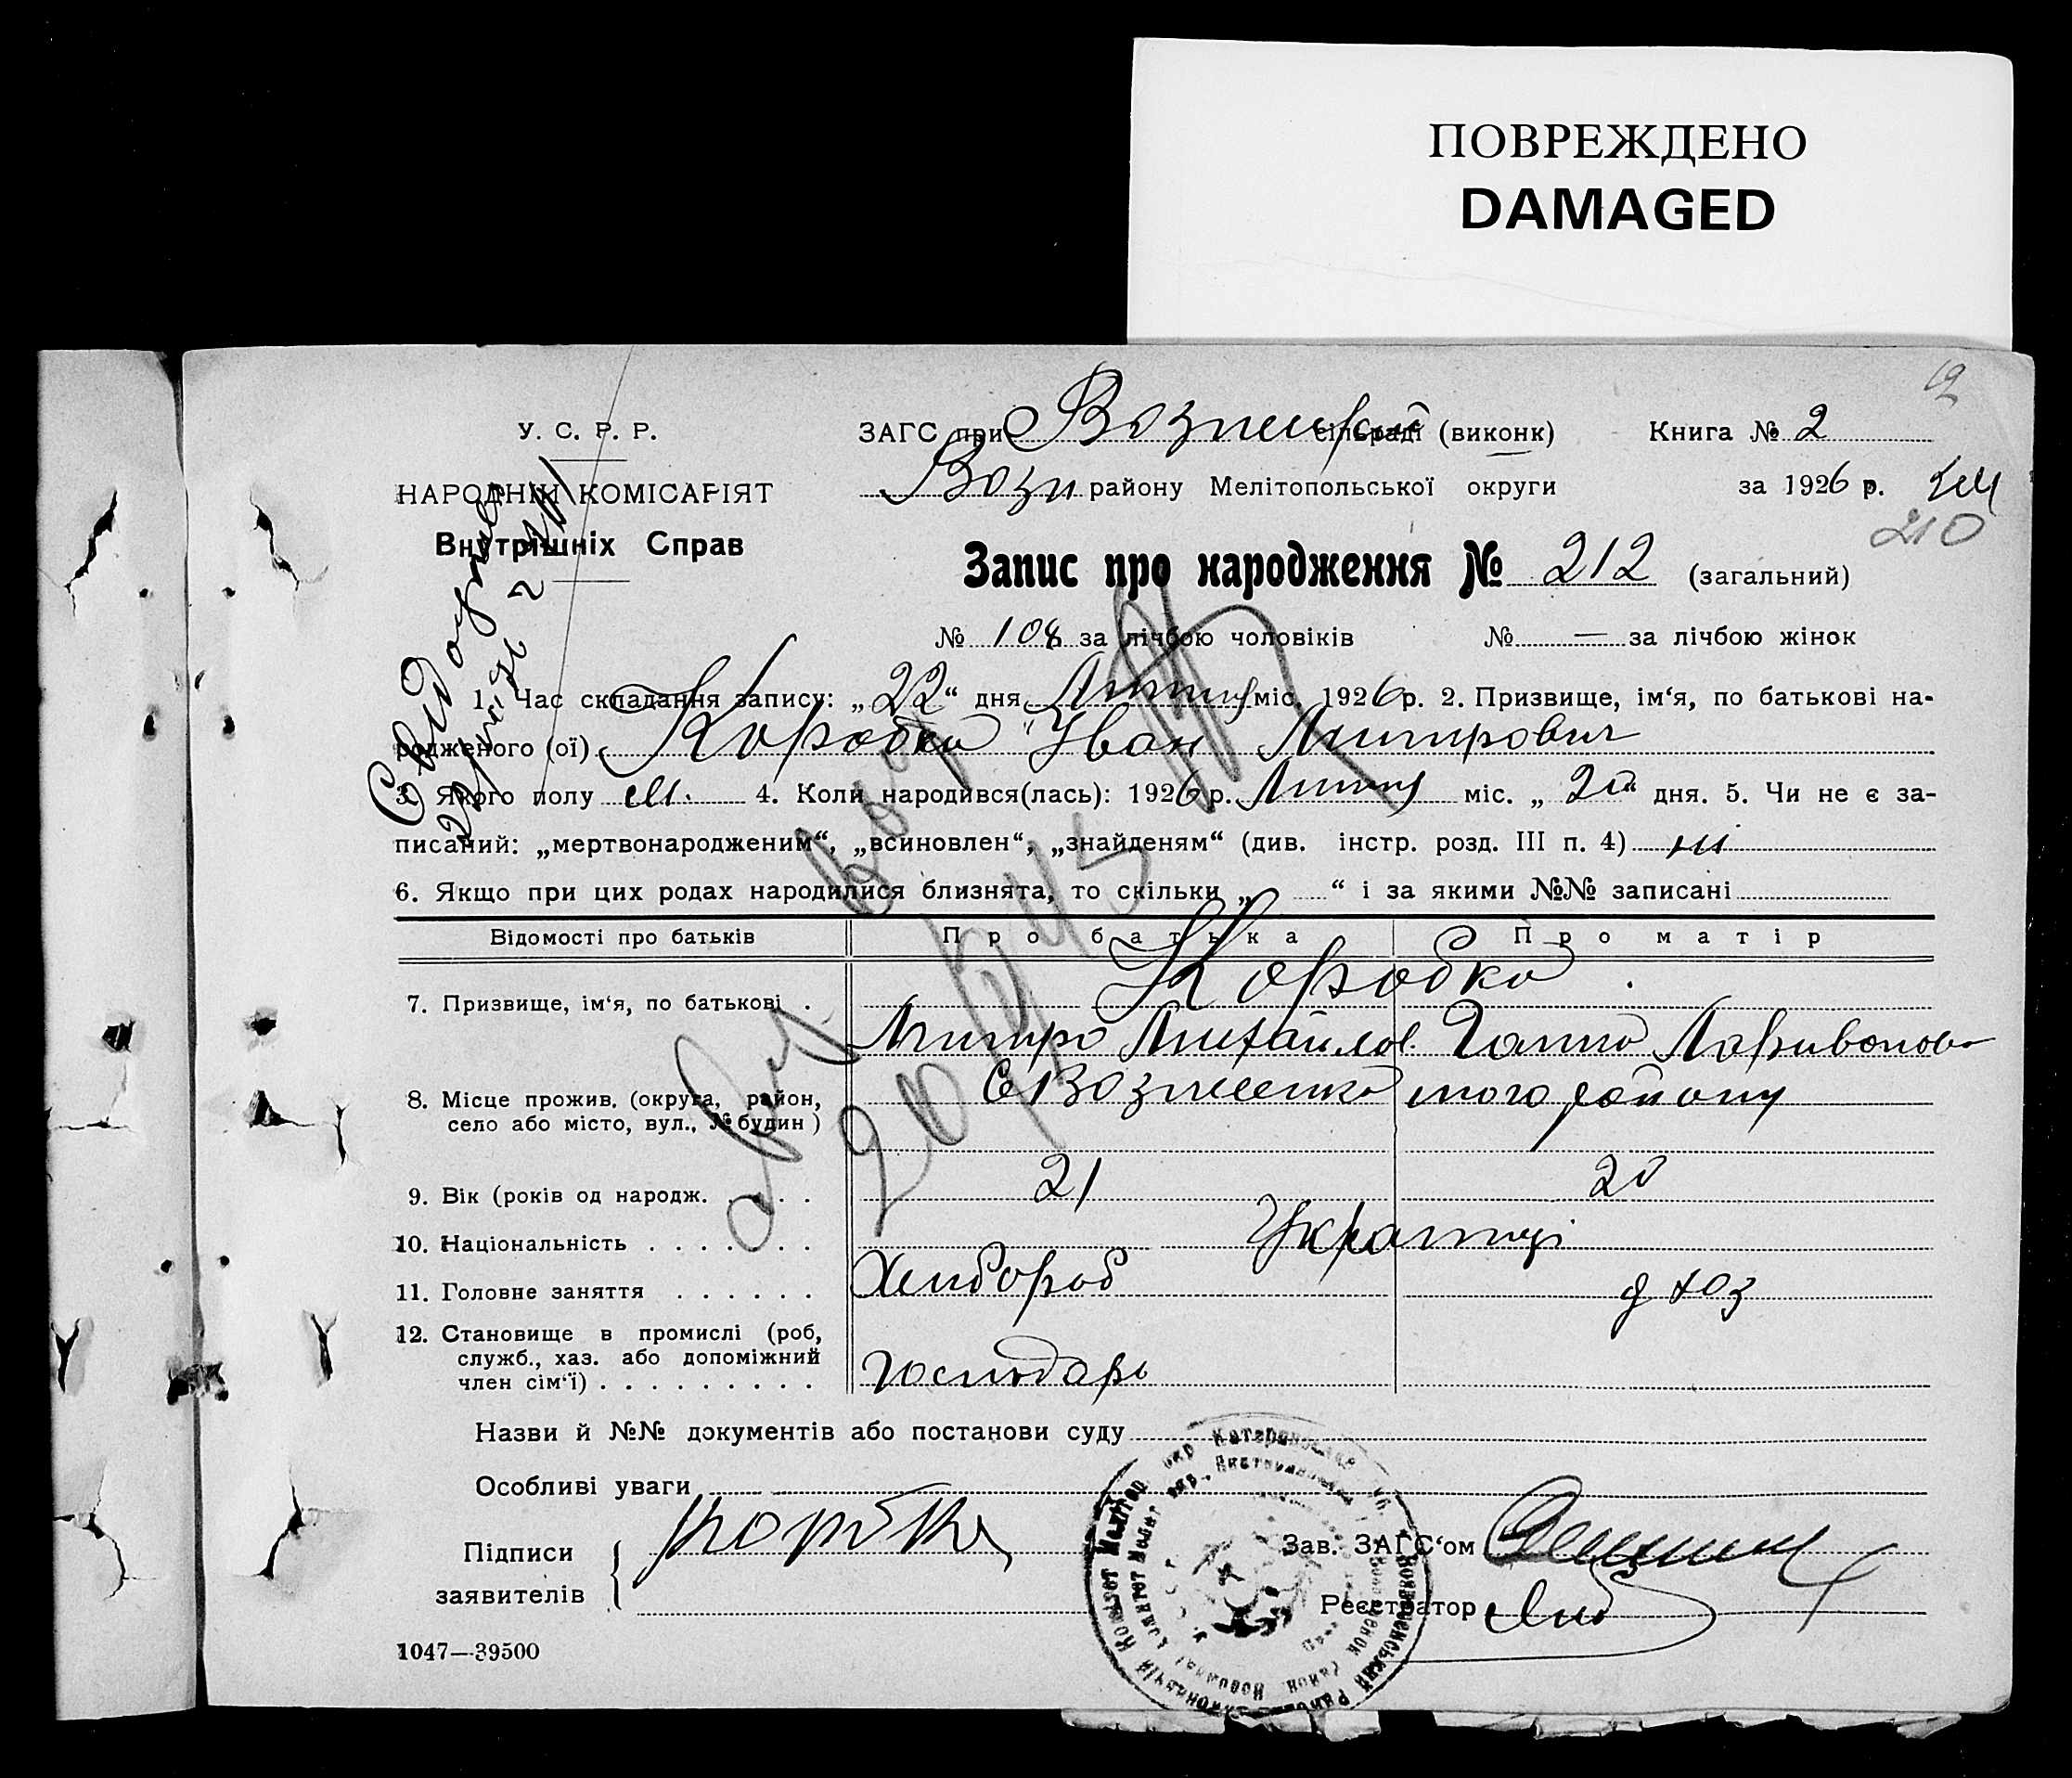 ПОВРЕЖДЕНО
DAMAGED
У. С. Р. Р.
НАРОДНІЙ КОМІСАРІЯТ
Внутрішніх Справ
ЗАГС при сільраді (виконк) Книга № 2
Возн району Мелітопольської округи за 1926 р.
210
Запис про народження № 212 (загальний)
№ 108 за лічбою чоловіків № — за лічбою жінок
1. Час складання запису: „22“ дня Липня міс. 1926 р. 2. Призвище, ім‘я, по батькові на-
родженого (ої) Коробка Іван Митрович
3. Якого полу м. 4. Коли народився(лась): 1926 р. Липня міс. „20“ дня. 5. Чи не є за-
писаний: „мертвонародженим“, „всиновлен“, „знайденям“ (див. інстр. розд. III п. 4) ні
6. Якщо при цих родах народилися близнята, то скільки „ “ і за якими №№ записані
Відомості про батьків Про батька Про матір
7. Призвище, ім‘я, по батькові . Коробка
Митро Михайлов. Ганна Ларивонова
8. Місце прожив. (округа, район, с Вознесенка того району
село або місто, вул., № будин)
9. Вік (років од народж. . . . . 21 20
10. Національність . . . . . . . Українці
11. Головне заняття . . . . . . Хлібороб д хоз
12. Становище в промислі (роб,
служб., хаз. або допоміжний
член сім‘ї) . . . . . . . . . Господарь
Назви й №№ документів або постанови суду
Особливі уваги
Підписи заявителів Коробка
Зав. ЗАГС‘ом
Реєстратор
1047—39500